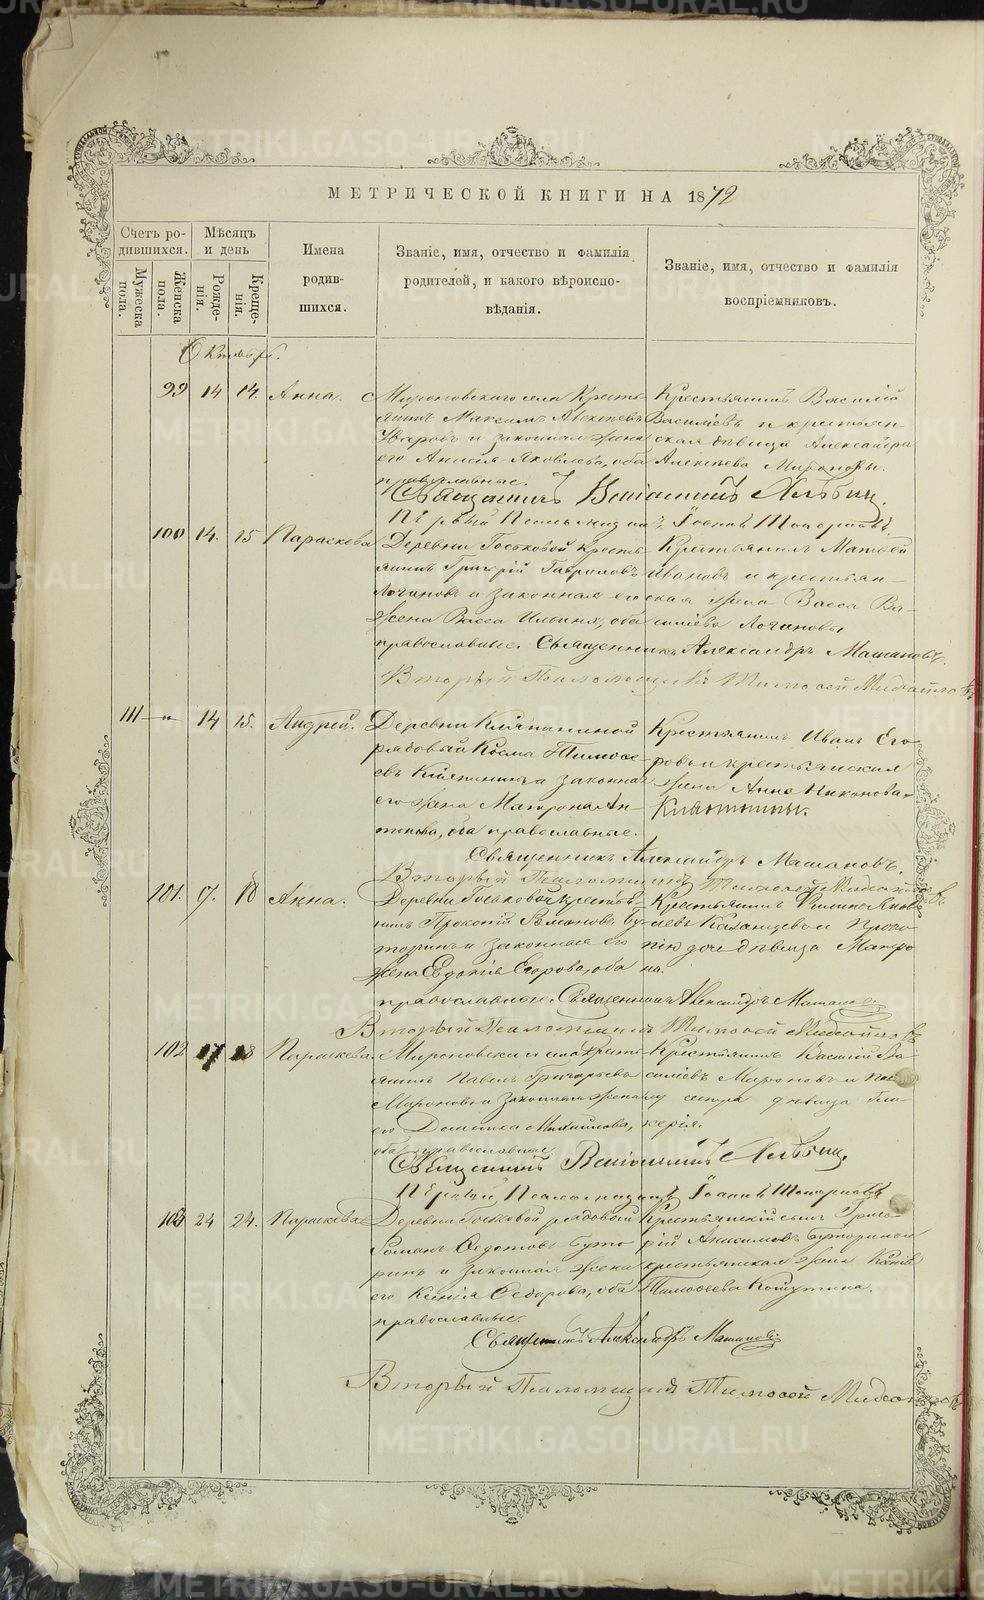 МЕТРИЧЕСКОЙ КНИГИ НА 1872
Счетъ ро-
дившихся.
Мѣсяцъ
и день
Мужеска
пола.
Женска
пола.
Рожде-
нія.
Креще-
нія.
Имена
родив-
шихся.
Званіе, имя, отчество и фамилія
родителей, и какого вѣроиспо-
вѣданія.
Званіе, имя, отчество и фамилія
воспріемниковъ.
Октябрь.
99 14 14. Анна.
Мироновскаго села Кресть-
янинъ Максимъ Алексѣевъ
Уваровъ и законная жена
его Анисія Яковлева, оба
православные.
Крестьянинъ Василій
Василіевъ и крестьян-
ская дѣвица Александра
Алексѣева Мироновы.
Священникъ
Первый Псаломщикъ Іоаннъ Топорковъ
100 14. 15 Параскева
Деревни Госьковой кресть-
янинъ Григорій Гавриловъ
Логиновъ и законная его
жена Васса Ильина, оба
православные.
Крестьянинъ Матвей
Ивановъ и крестьян-
ская жена Васса Ва-
силіева Логиновы
Священникъ Александръ
Вторый Псаломщикъ Тимоѳей Михайловъ
111 — " — 14 15. Андрей.
Деревни Кляпининой
рядовый Косма Тимоѳе-
евъ Кляпининъ а законная
его жена Матрона Ан-
тонова, оба православные.
Крестьянинъ Иванъ Его-
ровъ и крестьянская
жена Анна Никонова
Кляпинины.
Священникъ Александръ
Вторый Псаломщикъ Тимоѳей Михайловъ
101. 17. 18 Анна.
Деревни Госьковой крестья-
нинъ Прокопій Романовъ Бу-
торинъ и законная его
жена Евдокія Егорова, оба
православные.
Крестьянинъ Филипъ Яков-
левъ Казанцевъ и Проко-
пію дочь дѣвица Матро-
на.
Священникъ Александръ
Вторый Псаломщикъ Тимоѳей Михайловъ
102 17 18 Параскева.
Мироновскаго села Кресть-
янинъ Павелъ Григорьевъ
Мироновъ и законная жена
его Домника Михайлова,
оба православные.
Крестьянинъ Василій Ва-
силіевъ Мироновъ и
му сестра дѣвица Гли-
керія.
Священникъ
Первый Псаломщикъ Іоаннъ Топорковъ
103 24 24. Параскева
Деревни Госьковой рядовый
Романъ Ѳедотовъ Буто-
ринъ и законная жена
его Ксенія Ѳедорова, оба
православные.
Крестьянскій сынъ Григо-
рій Анисимовъ Буторинъ и
крестьянская жена
Тимоѳеева
Священникъ Александръ
Вторый Псаломщикъ Тимоѳей Михайловъ
METRIKI.GASO-URAL.RU